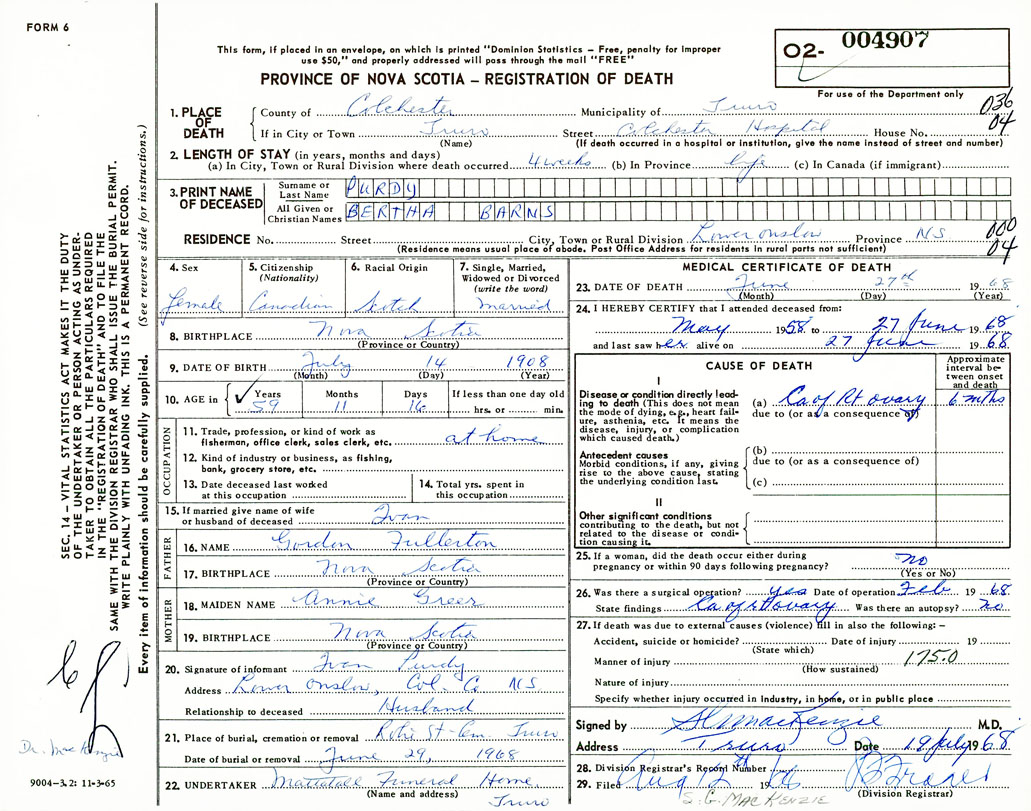 FORM 6
This form, if placed in an envelope, on which is printed "Dominion Statistics – Free, penalty for improper
use $50," and properly addressed will pass through the mail "FREE"
PROVINCE OF NOVA SCOTIA – REGISTRATION OF DEATH
O2- 004907
For use of the Department only
036
04
1. PLACE OF DEATH
County of Colchester Municipality of Truro
If in City or Town Truro Street Colchester Hospital House No.
(Name) (If death occurred in a hospital or institution, give the name instead of street and number)
2. LENGTH OF STAY (in years, months and days)
(a) In City, Town or Rural Division where death occurred 4 weeks (b) In Province life (c) In Canada (if immigrant)
3. PRINT NAME OF DECEASED
Surname or Last Name PURDY
All Given or Christian Names BERTHA BARNS
RESIDENCE No. Street City, Town or Rural Division Lower Onslow Province NS
(Residence means usual place of abode. Post Office Address for residents in rural parts not sufficient)
000
04
4. Sex
Female
5. Citizenship
(Nationality)
Canadian
6. Racial Origin
Scotch
7. Single, Married,
Widowed or Divorced
(write the word)
Married
8. BIRTHPLACE Nova Scotia
(Province or Country)
9. DATE OF BIRTH July 14 1908
(Month) (Day) (Year)
10. AGE in ✓ Years Months Days If less than one day old
59 11 16 hrs. or min.
OCCUPATION
11. Trade, profession, or kind of work as
fisherman, office clerk, sales clerk, etc. at home
12. Kind of industry or business, as fishing,
bank, grocery store, etc.
13. Date deceased last worked
at this occupation
14. Total yrs. spent in
this occupation
15. If married give name of wife
or husband of deceased Ivan
FATHER
16. NAME Gordon Fullerton
17. BIRTHPLACE Nova Scotia
(Province or Country)
MOTHER
18. MAIDEN NAME Annie Greer
19. BIRTHPLACE Nova Scotia
(Province or Country)
20. Signature of informant Ivan Purdy
Address Lower Onslow, Col. Co NS
Relationship to deceased Husband
21. Place of burial, cremation or removal St- Cem. Truro
Date of burial or removal June 29, 1968
22. UNDERTAKER Mattatall Funeral Home,
(Name and address) Truro
MEDICAL CERTIFICATE OF DEATH
23. DATE OF DEATH June 27th 1968
(Month) (Day) (Year)
24. I HEREBY CERTIFY that I attended deceased from:
May 1958 to 27 June 1968
and last saw her alive on 27 June 1968
CAUSE OF DEATH
Approximate
interval be-
tween onset
and death
I
Disease or condition directly lead-
ing to death (This does not mean
the mode of dying, e.g., heart fail-
ure, asthenia, etc. It means the
disease, injury, or complication
which caused death.)
(a) Ca of Rt ovary 6 mths
due to (or as a consequence of)
Antecedent causes
Morbid conditions, if any, giving
rise to the above cause, stating
the underlying condition last.
(b)
due to (or as a consequence of)
(c)
II
Other significant conditions
contributing to the death, but not
related to the disease or condi-
tion causing it.
25. If a woman, did the death occur either during
pregnancy or within 90 days following pregnancy? no
(Yes or No)
26. Was there a surgical operation? yes Date of operation Feb 1968
State findings Ca of rt ovary Was there an autopsy? no
27. If death was due to external causes (violence) fill in also the following: –
Accident, suicide or homicide? Date of injury 19
(State which)
Manner of injury 175.0
(How sustained)
Nature of injury
Specify whether injury occurred in Industry, in home, or in public place
Signed by MacKenzie M.D.
Address Truro Date 19 July 1968
28. Division Registrar's Record Number
29. Filed Aug 12
(Division Registrar)
S. G. MACKENZIE
SEC. 14 – VITAL STATISTICS ACT MAKES IT THE DUTY
OF THE UNDERTAKER OR PERSON ACTING AS UNDER-
TAKER TO OBTAIN ALL THE PARTICULARS REQUIRED
IN THE "REGISTRATION OF DEATH" AND TO FILE THE
SAME WITH THE DIVISION REGISTRAR WHO SHALL ISSUE THE BURIAL PERMIT.
WRITE PLAINLY WITH UNFADING INK. THIS IS A PERMANENT RECORD.
Every item of information should be carefully supplied. (See reverse side for instructions.)
Dr. MacKenzie
9004-3.2: 11-3-65